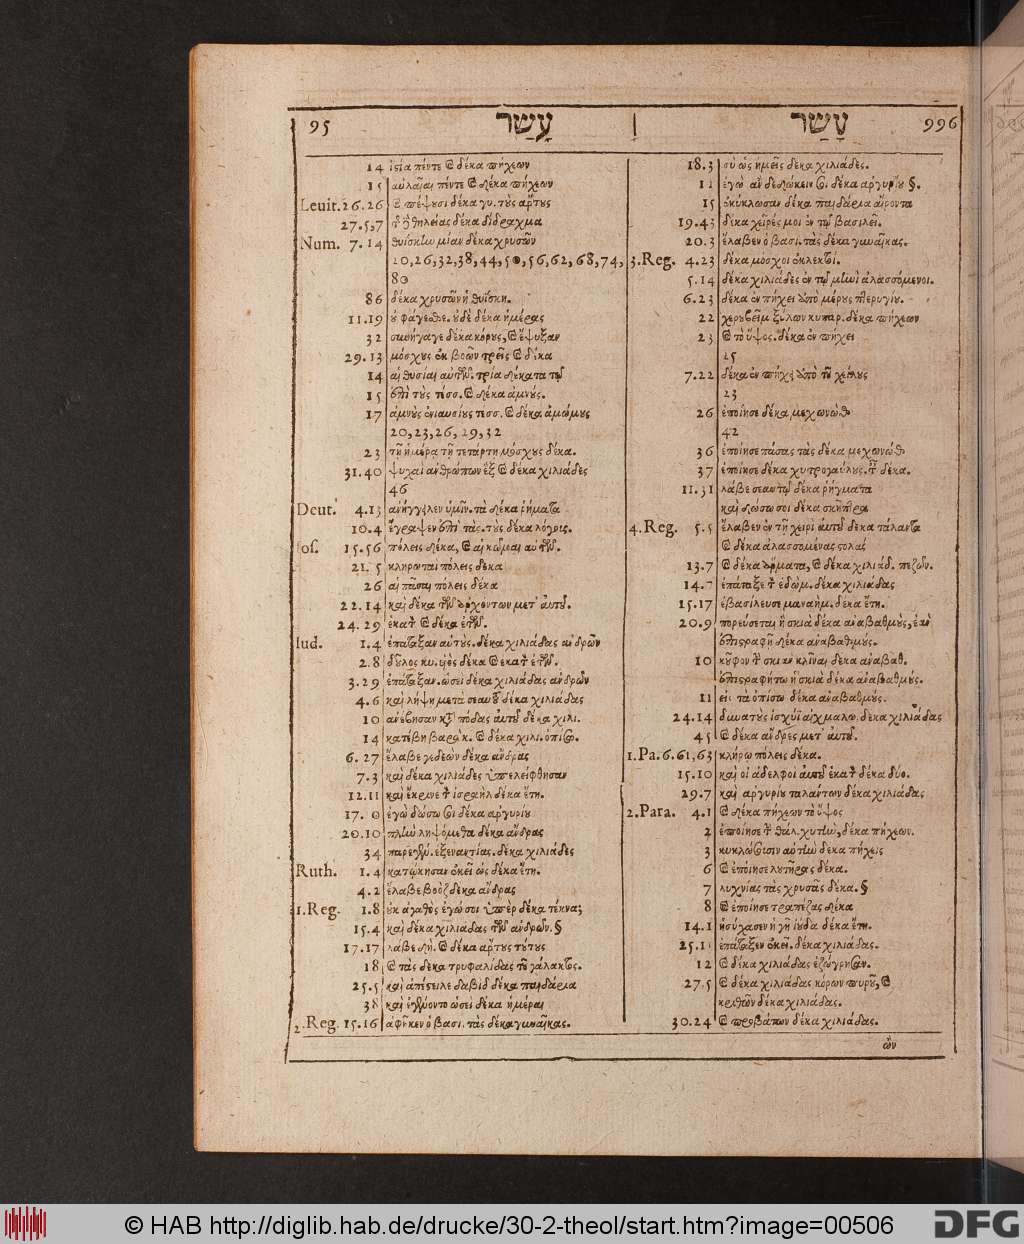 95 עָשַׂר
14 ἱστία πέντε καὶ δέκα πήχεων
15 αὐλαῖαι πέντε καὶ δέκα πήχεων
Leuit. 26.26 καὶ πέψουσι δέκα γυ. τοὺς ἄρτους
27.5,7 τῆς θηλείας δέκα δίδραχμα
Num. 7.14 θυΐσκην μίαν δέκα χρυσῶν
20,26,32,38,44,50,56,62,68,74,
80
86 δέκα χρυσῶν ἡ θυΐσκη.
11.19 οὐ φάγεσθε. οὐδὲ δέκα ἡμέρας
32 συνήγαγε δέκα κόρους, καὶ ἔψυξαν
29.13 μόσχους ἐκ βοῶν τρεῖς καὶ δέκα
14 αἱ θυσίαι αὐτῶν. τρία δέκατα τῷ
15 ἐπὶ τοὺς τέσσ. καὶ δέκα ἀμνούς.
17 ἀμνοὺς ἐνιαυσίους τεσσ. καὶ δέκα ἀμώμους
20,23,26, 29,32
23 τῇ ἡμέρα τῇ τετάρτη μόσχους δέκα.
31.40 ψυχαὶ ἀνθρώπων ἓξ καὶ δέκα χιλιάδες
46
Deut. 4.13 ἀνήγγειλεν ὑμῖν. τὰ δέκα ῥήματα
10.4 ἔγραψεν ἐπὶ τὰς. τοὺς δέκα λόγους.
Ios. 15.56 πόλεις δέκα, καὶ αἱ κῶμαι αὐτῶν.
21.5 κληρωταὶ πόλεις δέκα
26 αἱ πᾶσαι πόλεις δέκα
22.14 καὶ δέκα τῶν ἀρχόντων μετ' αὐτοῦ.
24.29 ἑκατὸν καὶ δέκα ἐτῶν.
Iud. 1.4 ἐπάταξαν αὐτοὺς. δέκα χιλιάδας ἀνδρῶν
2.8 δοῦλος κυ. υἱὸς δέκα καὶ ἑκατὸν ἐτῶν.
3.29 ἐπάταξαν. ὡσεὶ δέκα χιλιάδας ἀνδρῶν
4.6 καὶ λήψη μετὰ σεαυτοῦ δέκα χιλιάδας
10 ἀνέβησαν κατὰ πόδας αὐτοῦ δέκα χιλι.
14 κατέβη βαράκ. καὶ δέκα χιλι. ὀπίσω.
6.27 ἔλαβε γεδεὼν δέκα ἄνδρας
7.3 καὶ δέκα χιλιάδες ὑπελείφθησαν
12.11 καὶ ἔκρινε τὸν ἰσραὴλ δέκα ἔτη.
17.10 ἐγὼ δώσω σοι δέκα ἀργυρίου
20.10 πλὴν ληψόμεθα δέκα ἄνδρας
34 παρεγένον. ἐξεναντίας. δέκα χιλιάδες
Ruth. 1.4 κατῴκησαν ἐκεῖ ὡς δέκα ἔτη.
4.2 ἔλαβε βοὸζ δέκα ἄνδρας
1.Reg. 1.8 οὐκ ἀγαθὸς ἐγώ σοι ὑπὲρ δέκα τέκνα;
15.4 καὶ δέκα χιλιάδας τῶν ἀνδρῶν. §
17.17 λάβε δὴ. καὶ δέκα ἄρτους τούτους
18 καὶ τὰς δέκα τρυφαλίδας τοῦ γάλακτος.
25.5 καὶ ἀπέστειλε δαβὶδ δέκα παιδάρια
38 καὶ ἐγένοντο ὡσεὶ δέκα ἡμέραι
2.Reg. 15.16 ἀφῆκεν ὁ βασι. τὰς δέκα γυναῖκας.
עָשַׂר 996
18.3 σὺ ὡς ἡμεῖς δέκα χιλιάδες.
11 ἐγὼ ἂν δεδώκειν σοι δέκα ἀργυρίου §.
15 ἐκύκλωσαν δέκα παιδάρια αἴροντα
19.43 δέκα χεῖρές μοι ἐν τῷ βασιλεῖ.
20.3 ἔλαβεν ὁ βασι. τὰς δέκα γυναῖκας.
3.Reg. 4.23 δέκα μόσχοι ἐκλεκτοί.
5.14 δέκα χιλιάδες ἐν τῷ μηνὶ ἀλασσόμενοι.
6.23 δέκα ἐν πήχει ἀπὸ μέρους πτερυγίου.
22 χερουβεὶμ ξύλων κυπαρ. δέκα πήχεων
23 καὶ τὸ ὕψος. δέκα ἐν πήχει
25
7.22 δέκα ἐν πήχει ἀπὸ τοῦ χείλους
23
26 ἐποίησε δέκα μεχωνὼθ
42
36 ἐποίησε πάσας τὰς δέκα μεχωνὼθ
37 ἐποίησε δέκα χυτρογαύλους. τῶν δέκα.
11.31 λάβε σεαυτῷ δέκα ῥήγματα
καὶ δώσω σοι δέκα σκῆπτρα
4.Reg. 5.5 ἔλαβεν ἐν τῇ χειρὶ αὐτοῦ δέκα τάλαντα
καὶ δέκα ἀλασσομένας στολάς
13.7 καὶ δέκα ἅρματα, καὶ δέκα χιλιάδ. πεζῶν.
14.7 ἐπάταξε τὸν ἐδώμ. δέκα χιλιάδας
15.17 ἐβασίλευσε μαναήμ. δέκα ἔτη.
20.9 πορεύσεται ἡ σκιὰ δέκα ἀναβαθμοὺς, ἐὰν
ἐπιστραφῇ δέκα ἀναβαθμούς.
10 κοῦφον τὴν σκιὰν κλῖναι δέκα ἀναβαθ.
ἐπιστραφήτω ἡ σκιὰ δέκα ἀναβαθμούς.
11 εἰς τὰ ὀπίσω δέκα ἀναβαθμούς.
24.14 δυνατοὺς ἰσχύϊ αἰχμαλω. δέκα χιλιάδας
45 καὶ δέκα ἄνδρες μετ' αὐτοῦ.
1.Pa. 6.61,63 κλήρῳ πόλεις δέκα.
15.10 καὶ οἱ ἀδελφοὶ αὐτοῦ ἑκατὸν δέκα δύο.
29.7 καὶ ἀργυρίου ταλάντων δέκα χιλιάδας
2.Para. 4.1 καὶ δέκα πήχεων τὸ ὕψος
2 ἐποίησε τὴν θάλ. χυτὴν, δέκα πήχεων.
3 κυκλώσουσιν αὐτὴν δέκα πήχεις
6 καὶ ἐποίησε λουτῆρας δέκα.
7 λυχνίας τὰς χρυσᾶς δέκα. §
8 καὶ ἐποίησε τραπέζας δέκα
14.1 ἡσύχασεν ἡ γῆ ἰούδα δέκα ἔτη.
25.11 ἐπάταξεν ἐκεῖ. δέκα χιλιάδας.
12 καὶ δέκα χιλιάδας ἐζώγρησαν.
27.5 καὶ δέκα χιλιάδας κόρων πυροῦ, καὶ
κριθῶν δέκα χιλιάδας.
30.24 καὶ προβάτων δέκα χιλιάδας.
ὧν
© HAB http://diglib.hab.de/drucke/30-2-theol/start.htm?image=00506
DFG